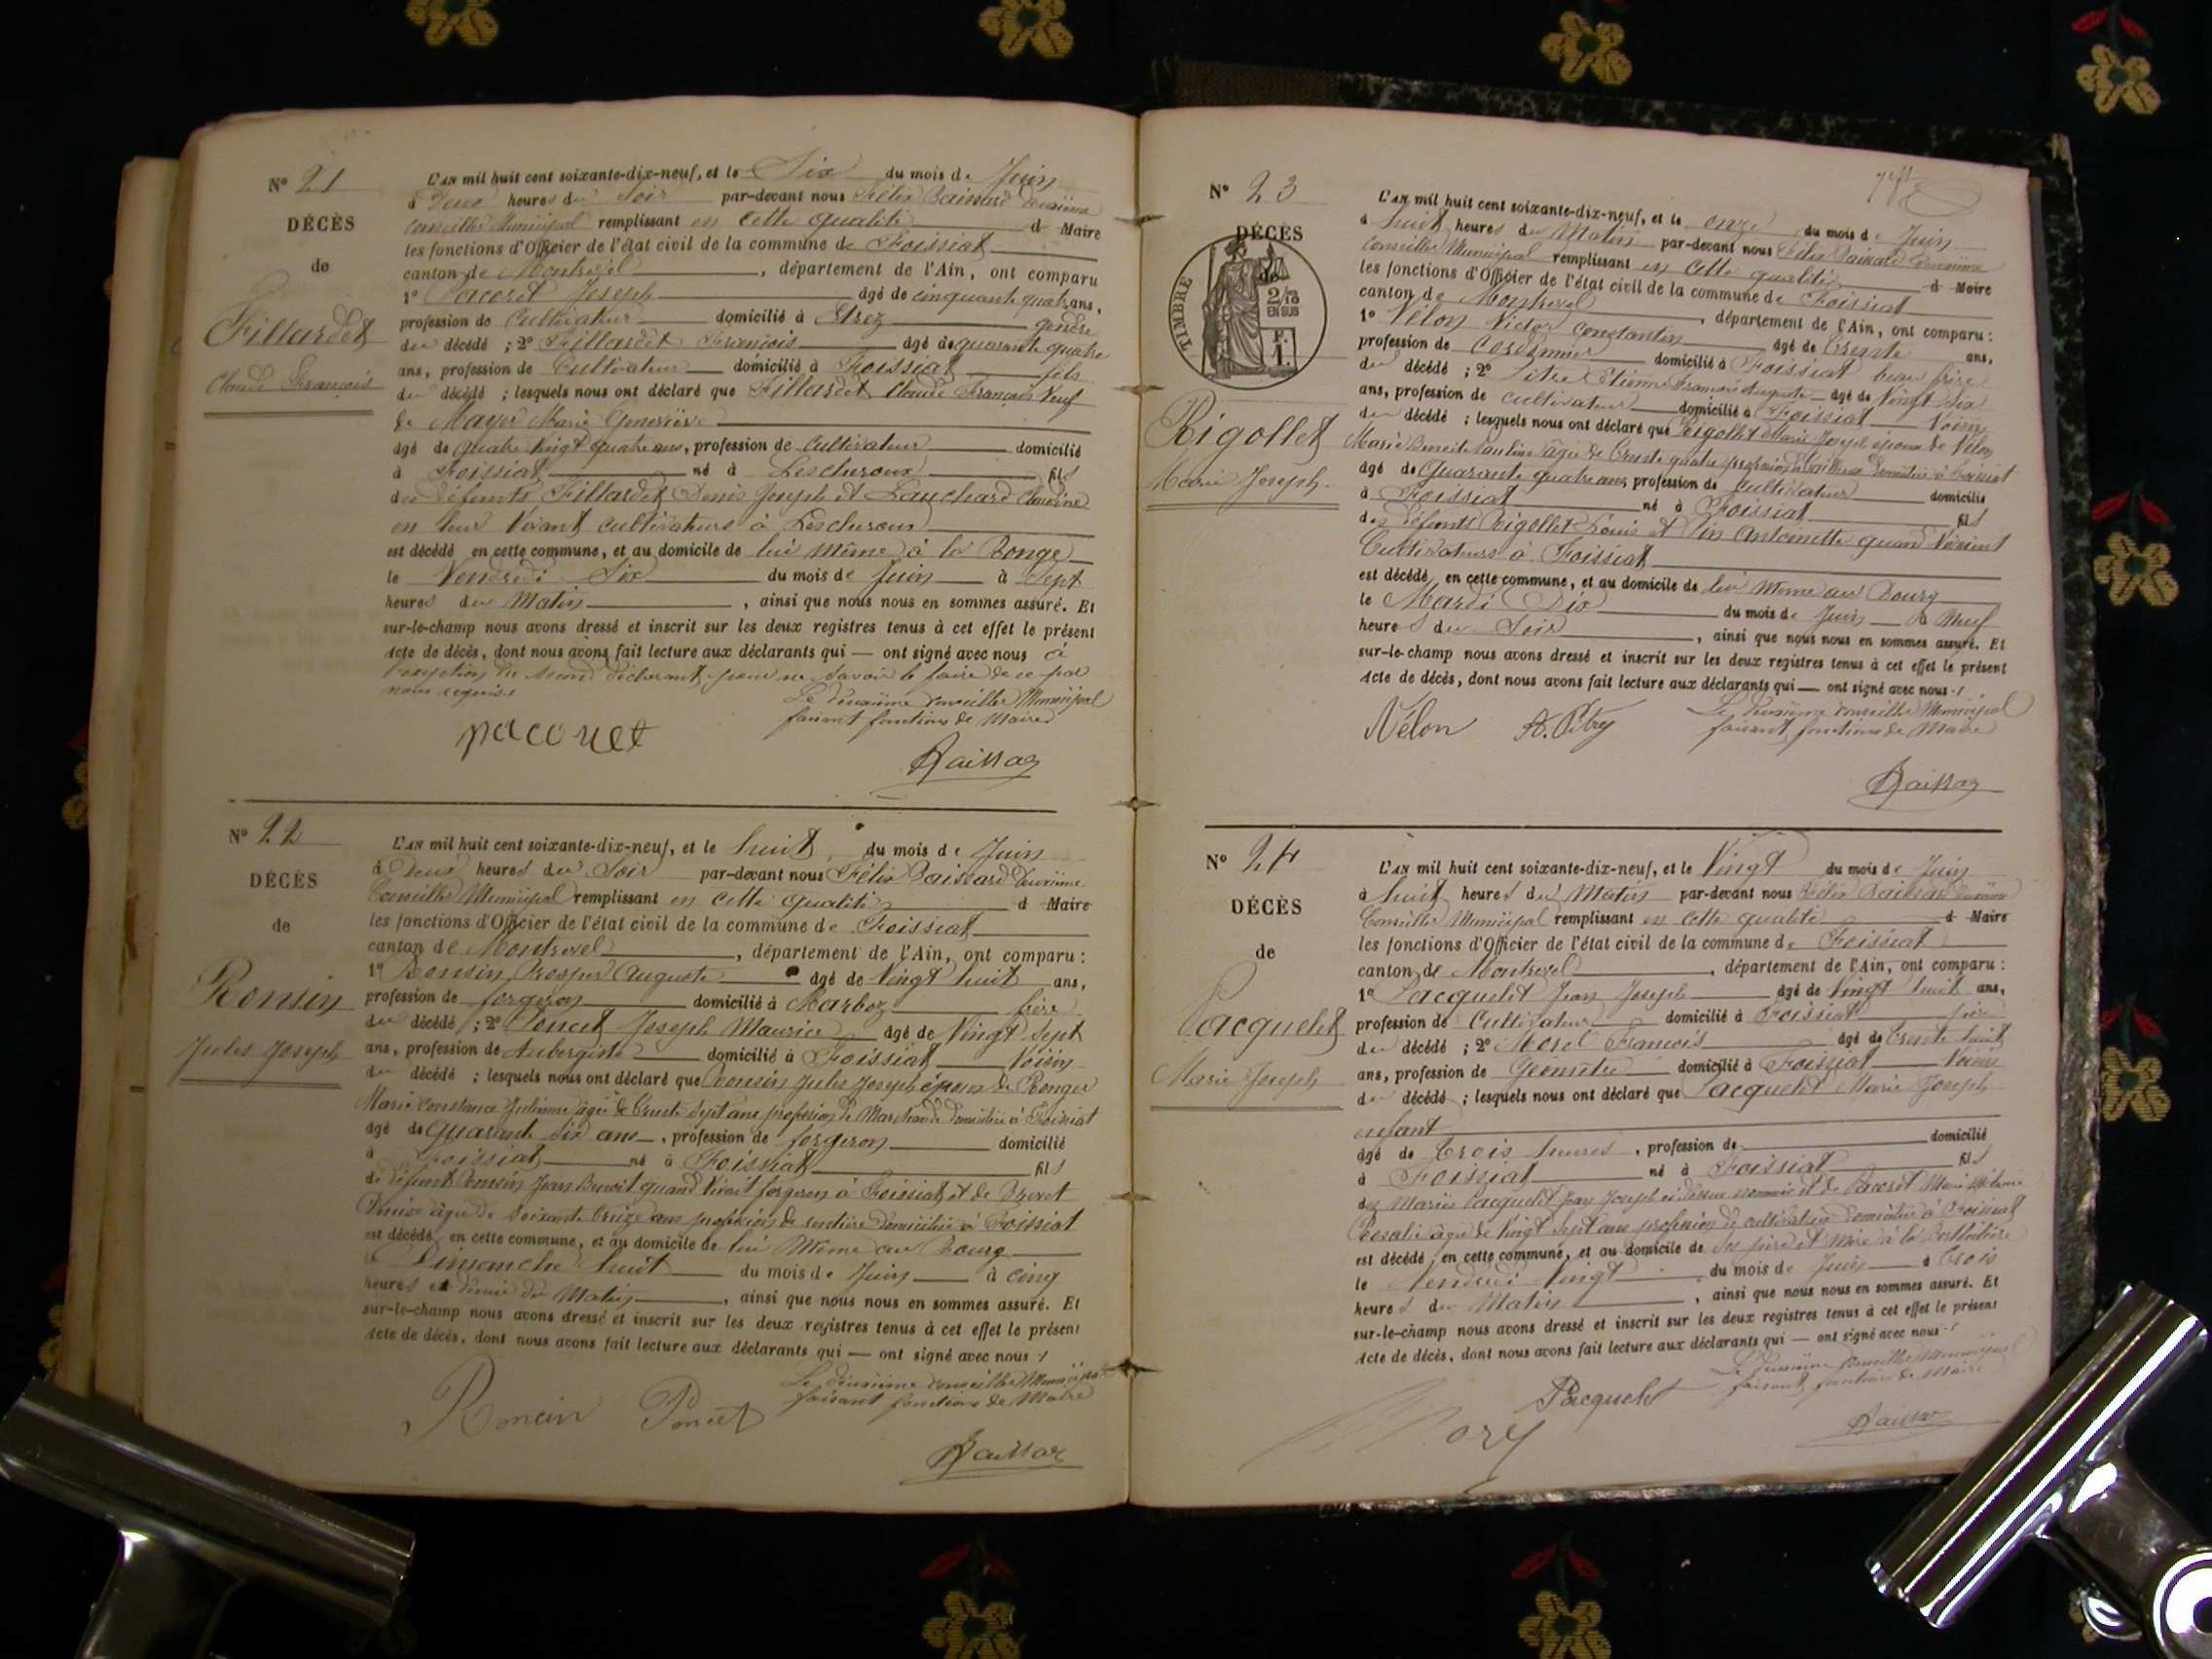 N° 21
DÉCÈS
de
Fillardet
Claude François
L'AN mil huit cent soixante-dix-neuf, et le Six du mois de Juin
à Deux heures du Soir par-devant nous Félix Baissard Deuxième
Conseiller Municipal remplissant en cette qualité d Maire
les fonctions d'Officier de l'état civil de la commune de Foissiat
canton de Montrevel, département de l'Ain, ont comparu
1° Pacoret Joseph âgé de cinquante quatre ans,
profession de Cultivateur domicilié à Etrez gendre
du décédé ; 2° Fillardet François âgé de quarante quatre
ans, profession de Cultivateur domicilié à Foissiat fils
du décédé ; lesquels nous ont déclaré que Fillardet Claude François Veuf
de Mayer Marie Geneviève
âgé de quatre vingt quatre ans, profession de Cultivateur domicilié
à Foissiat né à Lescheroux fils
des défunts Fillardet Denis Joseph et Claudine
en leur vivant cultivateurs à Lescheroux
est décédé en cette commune, et au domicile de lui même à la Ronge
le Vendredi Six du mois de Juin à Sept
heures du Matin, ainsi que nous nous en sommes assuré. Et
sur-le-champ nous avons dressé et inscrit sur les deux registres tenus à cet effet le présent
Acte de décès, dont nous avons fait lecture aux déclarants qui — ont signé avec nous à
l'exception du second déclarant pour ne savoir le faire de ce par
nous requis
Le deuxième conseiller Municipal
faisant fonctions de Maire
pacoret
N° 22
DÉCÈS
de
Ronsin
Jules Joseph
L'AN mil huit cent soixante-dix-neuf, et le huit du mois de Juin
à Deux heures du Soir par-devant nous Félix Baissard Deuxième
Conseiller Municipal remplissant en cette qualité d Maire
les fonctions d'Officier de l'état civil de la commune de Foissiat
canton de Montrevel, département de l'Ain, ont comparu :
1° Ronsin Prosper Auguste âgé de Vingt huit ans,
profession de forgeron domicilié à Marboz frère
du décédé ; 2° Poncet Joseph Maurice âgé de Vingt Sept
ans, profession de Aubergiste domicilié à Foissiat Voisin
du décédé ; lesquels nous ont déclaré que Ronsin Jules Joseph époux de Ronger
Marie Constance Julienne âgée de trente Sept ans profession de Marchande domiciliée à Foissiat
âgé de quarante Six ans, profession de forgeron domicilié
à Foissiat né à Foissiat fils
de défunt Ronsin Jean Benoit quand vivait forgeron à Foissiat et de
Denise âgée de Soixante treize ans profession de rentière domiciliée à Foissiat
est décédé en cette commune, et au domicile de lui même au Bourg
le Dimanche huit du mois de Juin à cinq
heures et demie du Matin, ainsi que nous nous en sommes assuré. Et
sur-le-champ nous avons dressé et inscrit sur les deux registres tenus à cet effet le présent
Acte de décès, dont nous avons fait lecture aux déclarants qui — ont signé avec nous
Le deuxième conseiller Municipal
faisant fonctions de Maire
Ronsin Poncet
N° 23
DÉCÈS
de
TIMBRE
2/10
EN SUS
F.
1.
Rigollet
Marie Joseph
L'AN mil huit cent soixante-dix-neuf, et le onze du mois de Juin
à huit heures du Matin par-devant nous Félix Baissard Deuxième
Conseiller Municipal remplissant en cette qualité d Maire
les fonctions d'Officier de l'état civil de la commune de Foissiat
canton de Montrevel, département de l'Ain, ont comparu :
1° Vélon Victor Constantin âgé de trente ans,
profession de Cordonnier domicilié à Foissiat beau frère
du décédé ; 2° Etienne François Auguste âgé de Vingt Six
ans, profession de cultivateur domicilié à Foissiat Voisin
du décédé ; lesquels nous ont déclaré que Rigollet Marie Joseph époux de Vélon
Marie Benoite Pauline âgée de trente quatre profession de domiciliée à Foissiat
âgé de Quarante quatre ans profession de Cultivateur domicilié
à Foissiat né à Foissiat fils
des défunts Rigollet Louis et Pin Antoinette quand vivaient
Cultivateurs à Foissiat
est décédé en cette commune, et au domicile de lui même au Bourg
le Mardi Dix du mois de Juin à Neuf
heures du Soir, ainsi que nous nous en sommes assuré. Et
sur-le-champ nous avons dressé et inscrit sur les deux registres tenus à cet effet le présent
Acte de décès, dont nous avons fait lecture aux déclarants qui — ont signé avec nous
Le deuxième conseiller Municipal
faisant fonctions de Maire
Vélon
N° 24
DÉCÈS
de
Pacquelet
Marie Joseph
L'AN mil huit cent soixante-dix-neuf, et le Vingt du mois de Juin
à huit heures du Matin par-devant nous Félix Baissard Deuxième
Conseiller Municipal remplissant en cette qualité d Maire
les fonctions d'Officier de l'état civil de la commune de Foissiat
canton de Montrevel, département de l'Ain, ont comparu :
1° Pacquelet Jean Joseph âgé de Vingt huit ans,
profession de Cultivateur domicilié à Foissiat père
du décédé ; 2° Morel François âgé de trente huit
ans, profession de Géomètre domicilié à Foissiat Voisin
du décédé ; lesquels nous ont déclaré que Pacquelet Marie Joseph
enfant
âgé de trois heures, profession de domicilié
à Foissiat né à Foissiat fils
des Mariés Pacquelet Jean Joseph ci dessus nommé et de Pacoret Marie
Rosalie âgée de Vingt Sept ans profession de cultivatrice domiciliée à Foissiat
est décédé en cette commune, et au domicile de Ses père et Mère à la
le Vendredi Vingt du mois de Juin à trois
heures du Matin, ainsi que nous nous en sommes assuré. Et
sur-le-champ nous avons dressé et inscrit sur les deux registres tenus à cet effet le présent
Acte de décès, dont nous avons fait lecture aux déclarants qui — ont signé avec nous
Le deuxième conseiller Municipal
faisant fonctions de Maire
Pacquelet